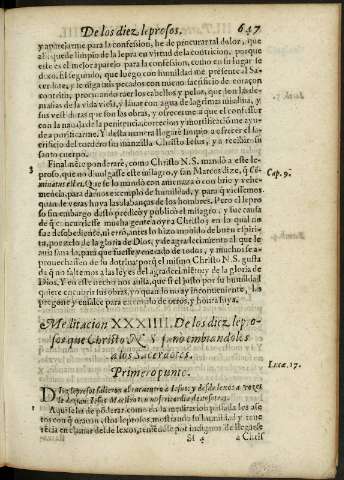 De los diez leprosos. 647
y aparejarme para la confesion, he de procurar tal dolor, que
alli quede limpio de la lepra en virtud de la contricion, porque
este es el mejor aparejo para la confesion, como en su lugar se
El segundo, que luego con humildad me presente al Sa-
cerdote, y le diga mis pecados con
contrito, procurando raer los cabellos y pelos, que son las de-
masias de la vida vieja, y lauar con agua de lagrimas mi alma, y
sus vestiduras que son las obras, y ofrecerme a que el confessor
con la nauaja de la penitencia, correcion y mortificacion me ayu-
de a purificarme. Y desta manera llegaré limpio a ofrecer el sa-
crificio del cordero sin manzilla Christo Iesus, y a recibir su
santo cuerpo.
3 Finalmẽte ponderaré, como Christo N. S. mandó a este le-
proso, que no diuulgasse este milagro, y san Marcos dize, q̃
Cap. 9.
Que se lo mandó con amenaza o con brio y vehe-
mencia, para darnos exemplo de humildad, y para q̃ viessemos
quan de veras huya las alabanças de los hombres. Pero el lepro
so sin embargo desto predicó y publicó el milagro, y fue causa
de q̃ concurriesse mucha gente a oyr a Christo: en lo qual no
fue desobediente, ni erró, antes lo hizo mouido de buen espiri-
tu, por zelo de la gloria de Dios, y de agradecimiento al que le
auia sanado, para que fuesse venerado de todos, y muchos se a-
prouechassen de su dotrina: porq̃ el mismo Christo N. S. gusta
de q̃ no faltemos a las leyes del agradecimiento y de la gloria de
Dios. Y en este hecho nos auisa, que si el justo por su humildad
quiere encubrir sus obras, yo quando no ay inconueniente, las
pregone y ensalce para exemplo de otros, y honra suya.
Meditacion XXXIIII. De los diez lepro-
sos que Christo N. S. sanó embiandoles
a los Sacerdotes.
Primero punto.
Lucæ. 17.
Diez leprosos salieron al encuentro a Iesus, y desde lexos a vozes
le dezian, Iesus Maestro ten misericordia de nosotros.
1 Aqui se ha de põderar como en la meditacion passada los afe
ctos con q̃ oraron estos leprosos, añadiendo la humildad y reue
rencia en clamar desde lexos, teniẽdose por indignos de llegarse
Sſ 4 a Christ